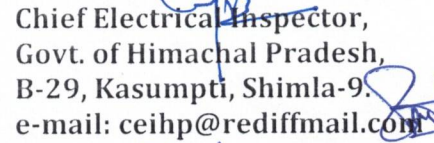 Chief Electrical Inspector,
Govt. of Himachal Pradesh,
B-29, Kasumpti, Shimla-9.
e-mail: ceihp@rediffmail.com